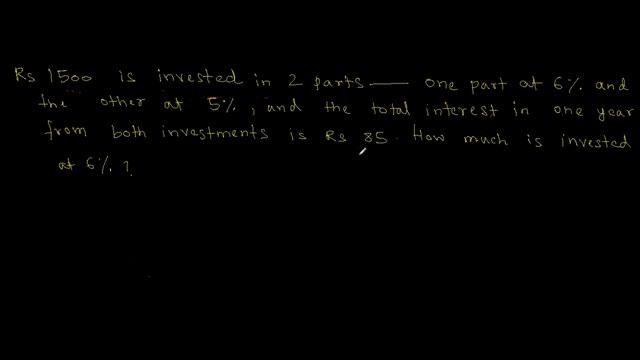 Rs 1500 is invested in 2 parts — one part at 6% and
the other at 5%, and the total interest in one year
from both investments is Rs 85. How much is invested
at 6%?